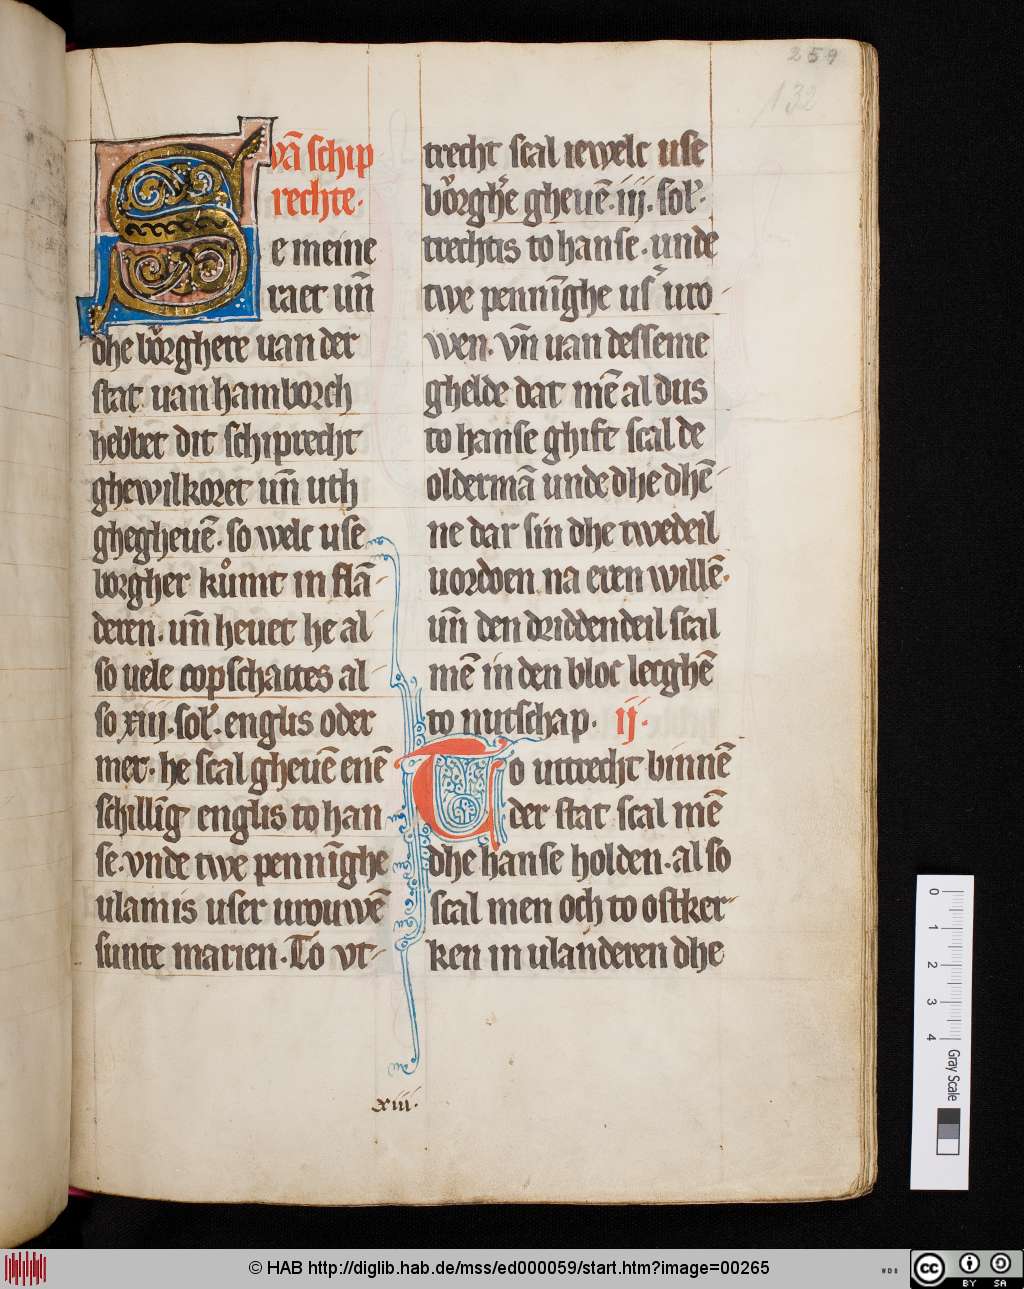 259
132
vā schip
rechte·
e meine
raet uñ
dhe börghere uan der
stat uan hamborch
hebbet dit schiprecht
ghewilkoret uñ uth
ghegheuē· so welc use
borgher kůmt in flā-
deren· uñ heuet he al
so uele copschattes al-
so xiij· sol᷑· englis oder
mer· he scal gheuē enē
schillīg englis to han
se· vnde twe pennīghe
ulamis user urouwē
sunte marien· To vt-
trecht scal iewelc use
borgh᷑e gheuē· iij· sol᷑·
trechtis to hanse· unde
twe pennīghe us᷑ uro-
wen· vñ uan desseme
ghelde dat mē al dus
to hanse ghift scal de
oldermā unde dhe dhē-
ne dar sin dhe twedeil
uordoen na eren willē·
uñ den driddendeil scal
mē in den bloc lecghē
to nutschap· ij·
To uttrecht binnē
der stat scal mē
dhe hanse holden· al so
scal men och to ostker-
ken in ulanderen dhe
xiii·
0
1
2
3
4
Gray Scale
© HAB http://diglib.hab.de/mss/ed000059/start.htm?image=00265
cc
BY SA